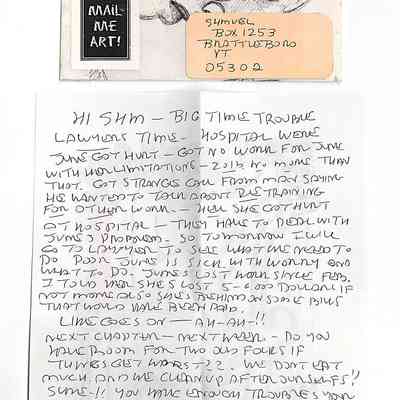 MAIL
ME
ART!
SHMUEL
BOX 1253
BRATTLEBORO
VT
05302
HI SHM – BIG TIME TROUBLE
LAWYERS TIME – HOSPITAL WERE
JUNE GOT HURT – GOT NO WORK FOR JUNE
WITH HER LIMITATIONS – NO MORE THAN
THAT. GOT STRANGE CALL FROM MAN SAYING
HE WANTED TO TALK ABOUT RETRAINING
FOR OTHER WORK. – HELL SHE GOT HURT
AT HOSPITAL – THEY HAVE TO DEAL WITH
JUNE'S PROBLEM. SO TOMORROW I WILL
GO TO LAWYER TO SEE WHAT WE NEED TO
DO. POOR JUNE IS SICK WITH WORRY AND
WHAT TO DO. JUNE'S LOST WORK SINCE FEB.
I TOLD HER SHE'S LOST 5-6,000 DOLLARS IF
NOT MORE ALSO SHE'S BEHIND ON SOME BILLS
THAT WOULD HAVE BEEN PAID.
LIFE GOES ON – AH-AH-!!
NEXT CHAPTER – NEXT WEEK. – DO YOU
HAVE ROOM FOR TWO OLD FOLKS IF
THINGS GET WORST??. WE DON'T EAT
MUCH AND WE CLEAN UP AFTER OURSELFS!!
SURE-!! YOU HAVE ENOUGH TROUBLES YOUR